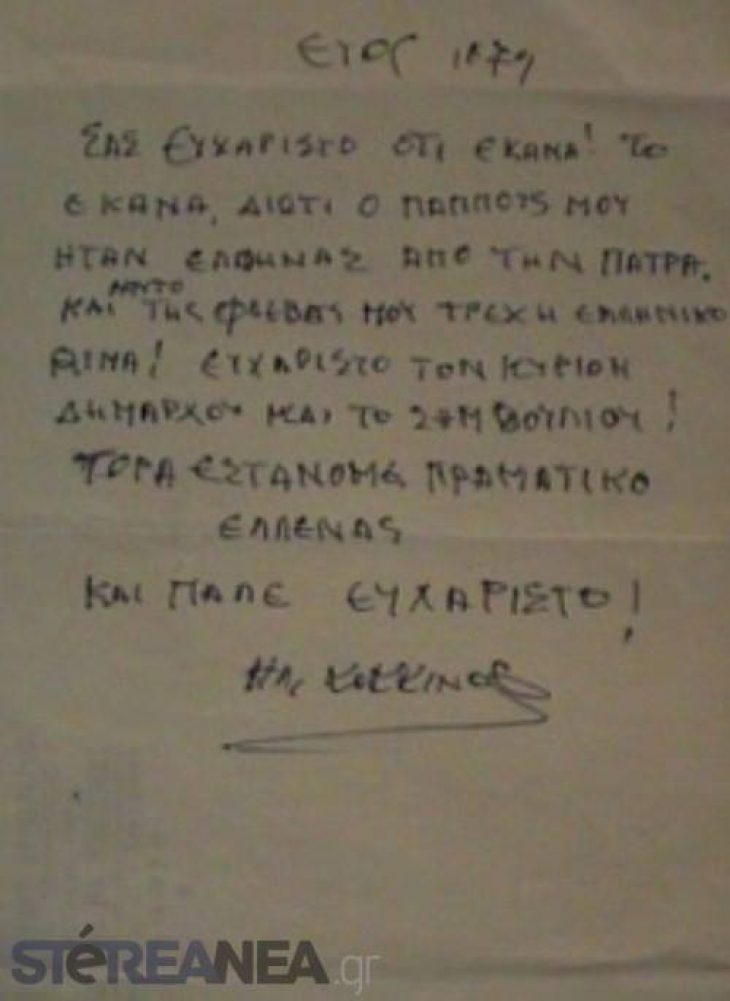 ΕΤΟΣ 1879
ΣΑΣ ΕΥΧΑΡΙΣΤΟ ΟΤΙ ΕΚΑΝΑ! ΤΟ
ΕΚΑΝΑ, ΔΙΩΤΙ Ο ΠΑΠΠΟΥΣ ΜΟΥ
ΗΤΑΝ ΕΛΛΗΝΑΣ ΑΠΟ ΤΗΝ ΠΑΤΡΑ.
ΚΑΙ ΑΥΤΟ ΤΗΣ ΦΛΕΒΑΣ ΜΟΥ ΤΡΕΧΗ ΕΛΛΗΝΙΚΟ
ΑΙΜΑ! ΕΥΧΑΡΙΣΤΟ ΤΟΝ ΚΥΡΙΟΝ
ΔΗΜΑΡΧΟΥ ΚΑΙ ΤΟ ΣΥΜΒΟΥΛΙΟΥ!
ΤΟΡΑ ΕΣΤΑΝΟΜΕ ΠΡΑΜΑΤΙΚΟ
ΕΛΛΕΝΑΣ
ΚΑΙ ΠΑΛΕ ΕΥΧΑΡΙΣΤΟ!
ΗΛ. ΚΟΚΚΙΝΟΣ
STéREANEA.gr